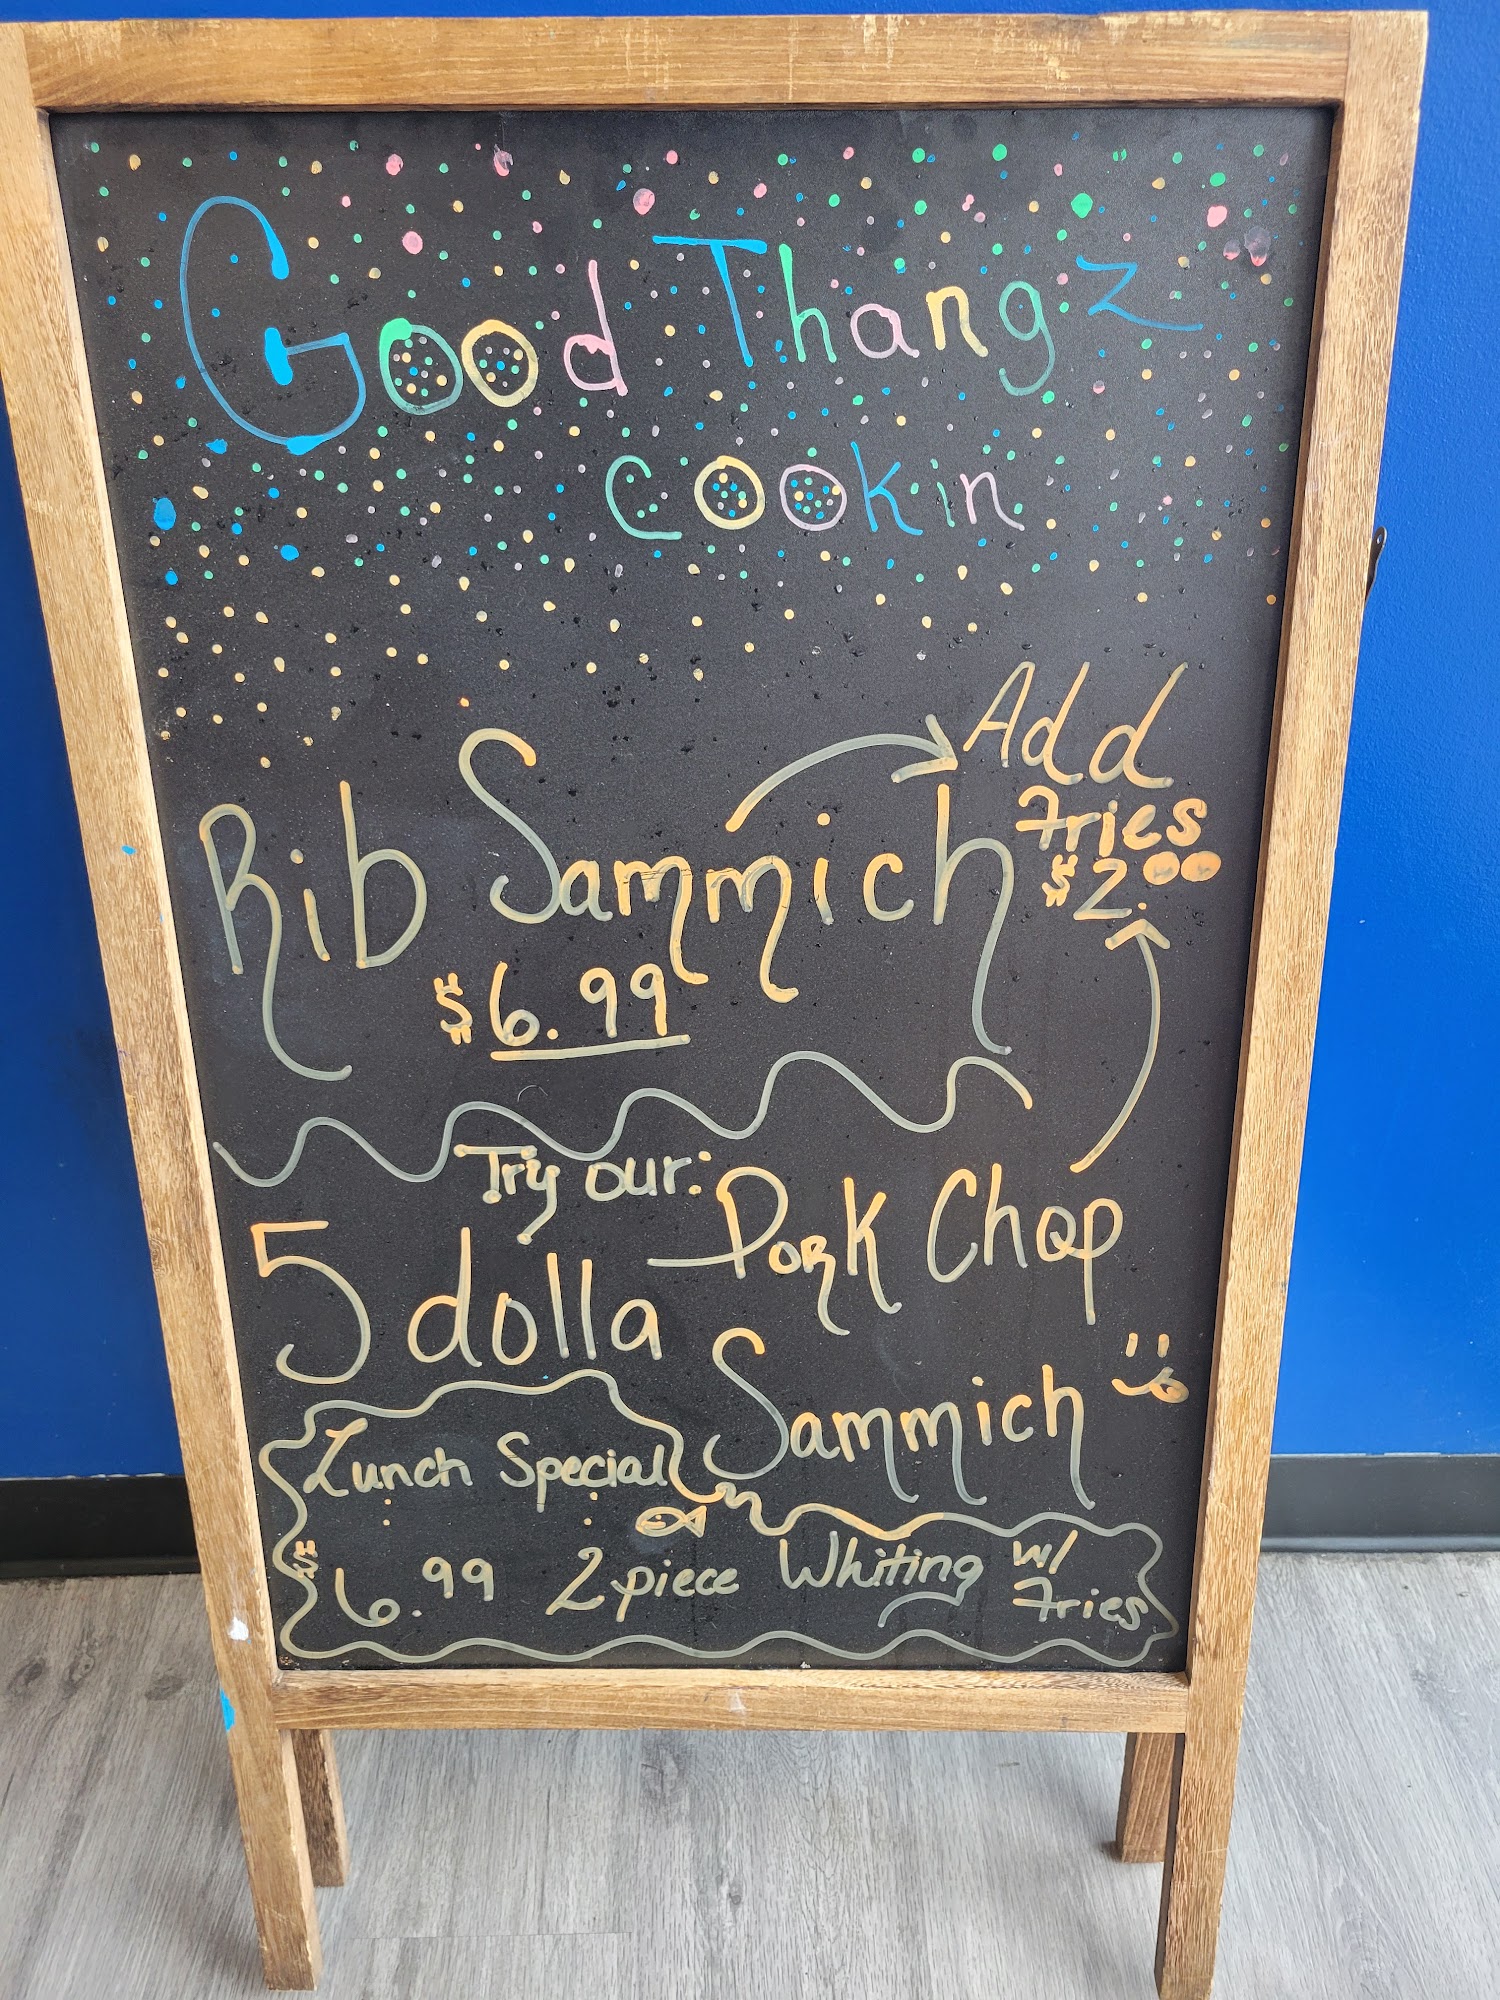 Good Thangz
Cookin
Rib Sammich
$6.99
Add
Fries
$2.00
Try our:
5 dolla
Pork Chop
Sammich
Lunch Special
$6.99 2 piece Whiting w/
Fries